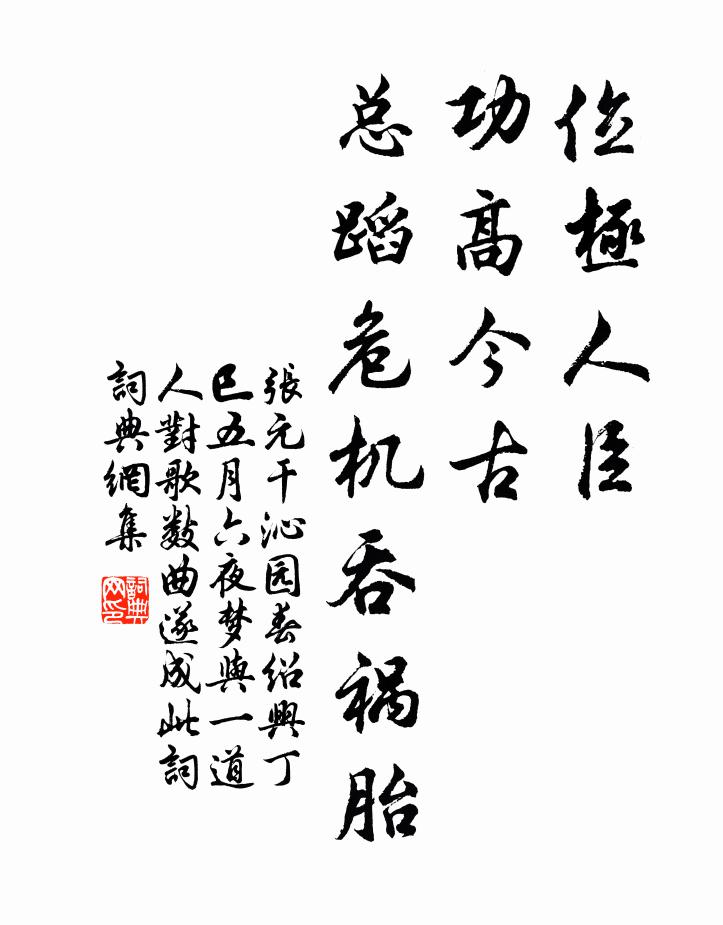 位極人臣
功高今古
总蹈危机吞祸胎
張元干沁园春绍興丁
巳五月六夜梦與一道
人對歌数曲遂成此詞
詞典網集
詞典
网印